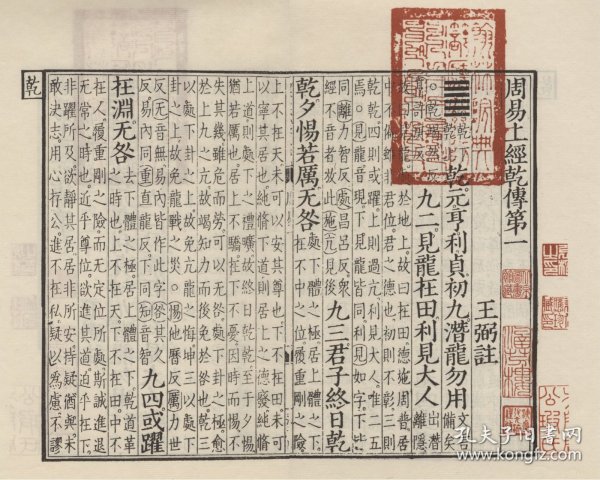 周易上經乾傳第一
王弼註
乾元亨利貞初九潛龍勿用文言備矣
九二見龍在田利見大人出潛離隱
於地上故曰在田德施周普居
中不偏雖非君位君之德也初則不彰三則
乾乾四則或躍上則過亢利見大人唯二五
焉○見龍賢遍反下見龍皆同利見如字下皆
同離力智反處昌呂反衆
經不音者放此施始豉反見後九三君子終日乾
乾夕惕若厲无咎處下體之極居上體之下
在不中之位履重剛之險
上不在天未可以安其尊也下不在田未可
以寧其居也純脩下道則居上之德廢純脩
上道則處下之禮曠故終日乾乾至于夕惕
猶若厲也居上不驕在下不憂因時而惕不
失其幾雖危而勞可以无咎處下卦之極愈
於上九之亢故竭知力而後免於咎也乾三
以處下卦之上故免亢龍之悔坤三以處下
卦之上故免龍戰之災○惕他歷反厲力世
反无音無易內皆作此字咎其久
反易內同重直龍反下同知音智九四或躍
在淵无咎去下體之極居上體之下乾道革
之時也上不在天下不在田中不
在人履重剛之險而无定位所處斯誠進退
无常之時也近乎尊位欲進其道迫乎在下
非躍所及欲靜其居居非所安持疑猶與未
敢決志用心存公進不在私疑以爲慮不謬
乾
孔夫子旧书网
www.kongfz.com